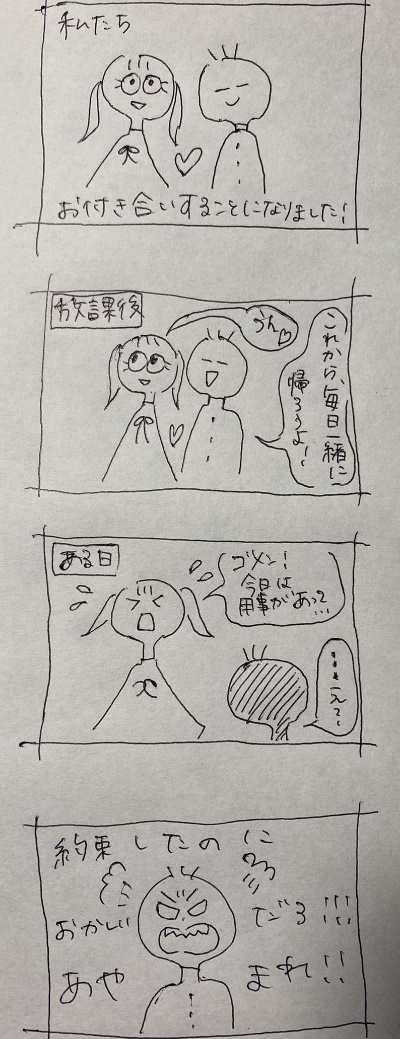 私たち
お付き合いすることになりました！
放課後
これから、毎日一緒に
帰ろうよ！
うん♡
ある日
ゴメン！
今日は
用事があって…
…え？
約束したのに
おかしいだろ!!!
あやまれ!!